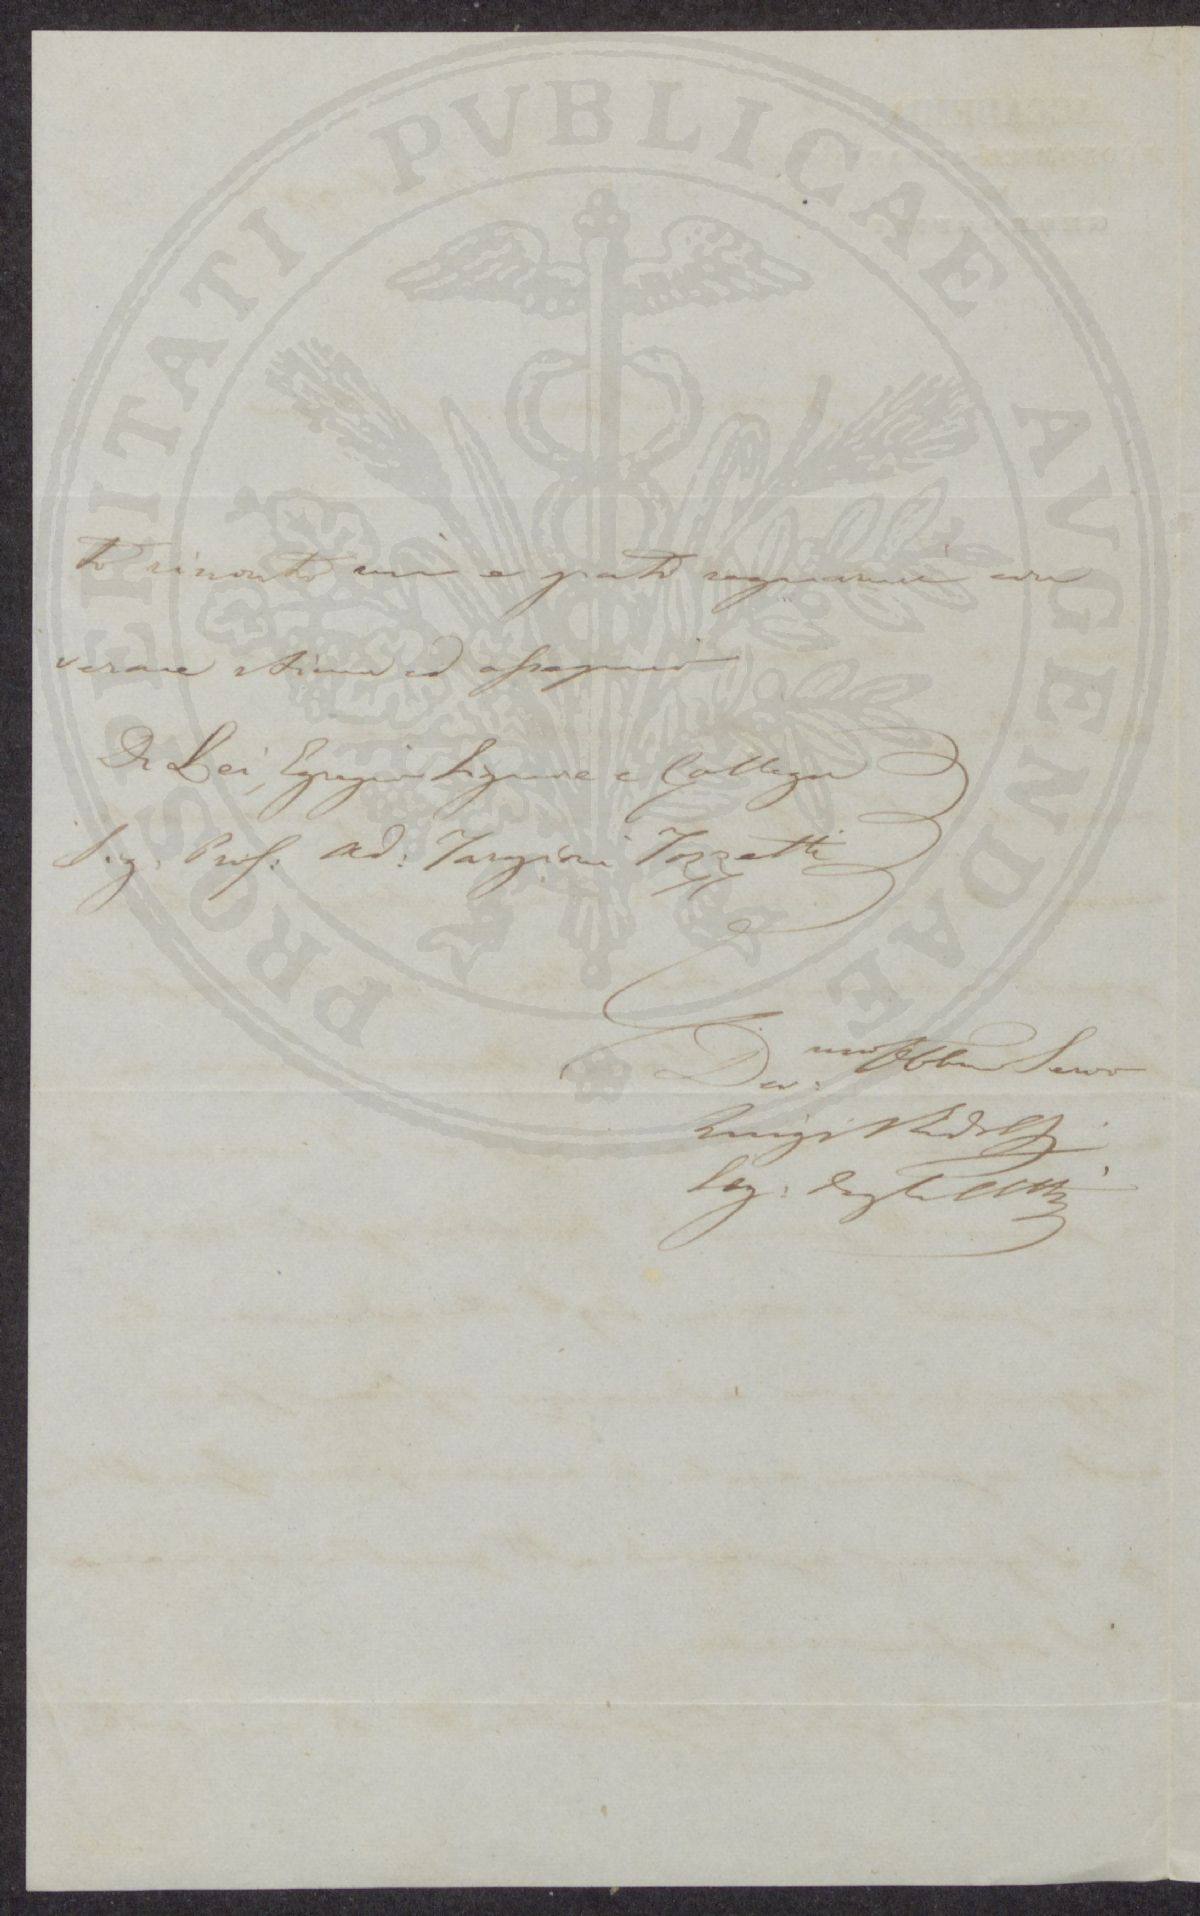 PROSPERITATI PVBLICAE AVGENDAE
to riscontro mi è grato segnarmi con
verace stima ed ossequio
Di Lei, Egregio Signore e Collega
Sig. Prof: Ad: Targioni Tozzetti
Dev:mo Obbmo Servo
Luigi Ridolfi
Seg: